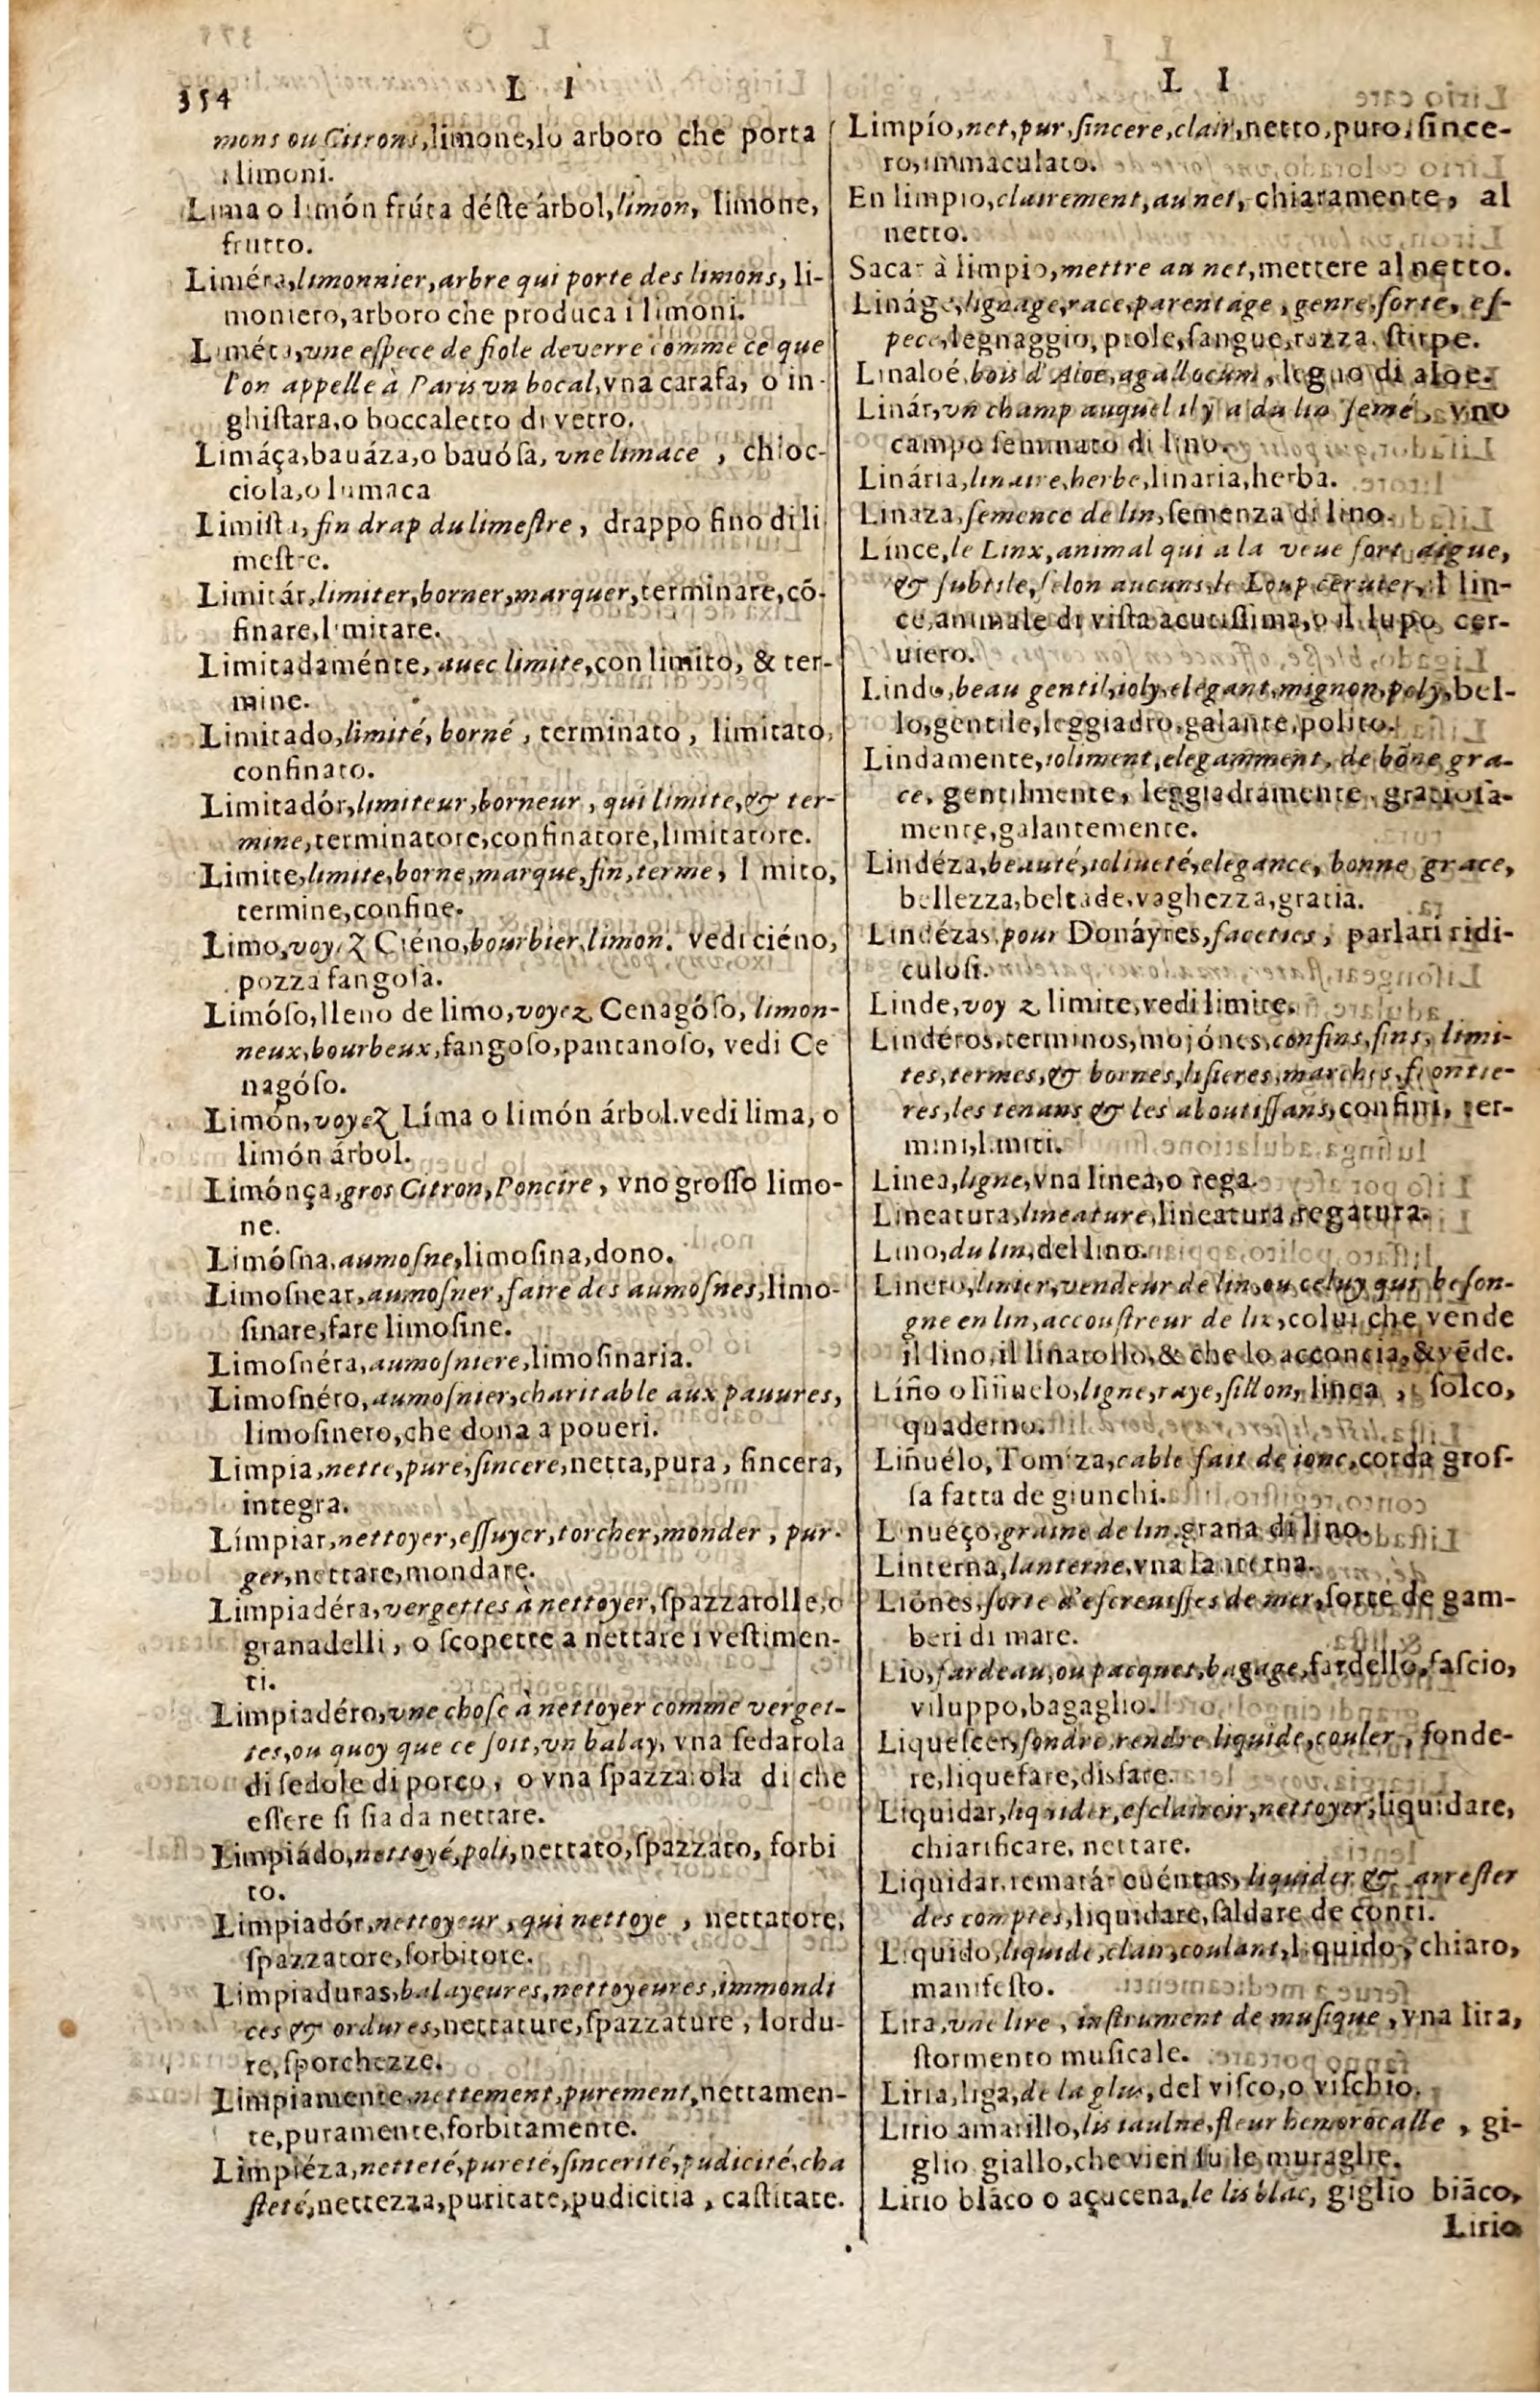 354
L I
mons ou Citrons, limone, lo arboro che porta
i limoni.
Lima o limón frúta déſte árbol, limon, limone,
frutto.
Liméra, limonnier, arbre qui porte des limons, li-
moniero, arboro che produca i limoni.
Liméta, vne eſpece de fiole de verre comme ce que
l'on appelle à Paris vn bocal, vna carafa, o in-
ghiſtara, o boccaletto di vetro.
Limáça, bauáza, o bauóſa, vne limace, chioc-
ciola, o lumaca
Limiſta, fin drap du limeſtre, drappo fino di li
meſtre.
Limitár, limiter, borner, marquer, terminare, cō-
finare, limitare.
Limitadaménte, auec limite, con limito, & ter-
mine.
Limitado, limité, borné, terminato, limitato,
confinato.
Limitadór, limiteur, borneur, qui limite, & ter-
mine, terminatore, confinatore, limitatore.
Limite, limite, borne, marque, fin, terme, limito,
termine, confine.
Limo, voyez Ciéno, bourbier, limon. vedi ciéno,
pozza fangoſa.
Limóſo, lleno de limo, voyez Cenagóſo, limon-
neux, bourbeux, fangoſo, pantanoſo, vedi Ce
nagóſo.
Limón, voyez Líma o limón árbol. vedi lima, o
limón árbol.
Limónça, gros Citron, Poncire, vno groſſo limo-
ne.
Limóſna, aumoſne, limoſina, dono.
Limoſnear, aumoſner, faire des aumoſnes, limo-
ſinare, fare limoſine.
Limoſnéra, aumoſniere, limoſinaria.
Limoſnéro, aumoſnier, charitable aux pauures,
limoſinero, che dona a poueri.
Limpia, nette, pure, ſincere, netta, pura, ſincera,
integra.
Límpiar, nettoyer, eſſuyer, torcher, monder, pur-
ger, nettare, mondare.
Limpiadéra, vergettes à nettoyer, ſpazzarolle, o
granadelli, o ſcopette a nettare i veſtimen-
ti.
Limpiadéro, vne choſe à nettoyer comme verget-
tes, ou quoy que ce ſoit, vn balay, vna ſedarola
di ſedole di porco, o vna ſpazzarola di che
eſſere ſi ſia da nettare.
Limpiádo, nettoyé, poli, nettato, ſpazzato, forbi
to.
Limpiadór, nettoyeur, qui nettoye, nettatore,
ſpazzatore, forbitore.
Limpiaduras, balayeures, nettoyeures, immondi
ces & ordures, nettature, ſpazzature, lordu-
re, ſporchezze.
Limpiamente, nettement, purement, nettamen-
te, puramente, forbitamente.
Limpiéza, netteté, pureté, ſincerité, pudicité, cha
ſteté, nettezza, puritate, pudicitia, caſtitate.
L I
Limpío, net, pur, ſincere, clair, netto, puro, ſince-
ro, immaculato.
En limpio, clairement, au net, chiaramente, al
netto.
Sacar à limpio, mettre au net, mettere al netto.
Lináge, lignage, race, parentage, genre, ſorte, eſ-
pece, legnaggio, prole, ſangue, razza, ſtirpe.
Linaloé, bois d'Aloe, agallocum, legno di aloe.
Linár, vn champ auquel il y a du lin ſemé, vno
campo ſeminato di lino.
Linária, linaire, herbe, linaria, herba.
Linaza, ſemence de lin, ſemenza di lino.
Línce, le Linx, animal qui a la veue fort aigue,
& ſubtile, ſelon aucuns, le Loup ceruier, l lin-
ce, animale di viſta acutiſſima, o il lupo cer-
uiero.
Lindo, beau gentil, ioly, elegant, mignon, poly, bel-
lo, gentile, leggiadro, galante, polito.
Lindamente, ioliment, elegamment, de bōne gra-
ce, gentilmente, leggiadramente, gratioſa-
mente, galantemente.
Lindéza, beauté, iolieueté, elegance, bonne grace,
bellezza, beltade, vaghezza, gratia.
Lindézas, pour Donáyres, faceties, parlari ridi-
culoſi.
Linde, voyez limite, vedi limite.
Lindéros, terminos, mojónes, confins, fins, limi-
tes, termes, & bornes, liſieres, marches, frontie-
res, les tenans & les aboutiſſans, confini, ter-
mini, limiti.
Linea, ligne, vna linea, o rega.
Lineatura, lineature, lineatura, regatura.
Lino, du lin, del lino.
Linero, linier, vendeur de lin, ou celuy qui beſon-
gne en lin, accouſtreur de lin, colui che vende
il lino, il linarollo, & che lo acconcia, & vēde.
Líño o liñuelo, ligne, raye, ſillon, linea, ſolco,
quaderno.
Liñuélo, Tomiza, cable fait de ionc, corda groſ-
ſa fatta de giunchi.
Linuéço, graine de lin, grana di lino.
Linterna, lanterne, vna lanterna.
Liónes, ſorte d'eſcreuiſſes de mer, ſorte de gam-
beri di mare.
Lio, fardeau, ou pacquet, bagage, fardello, faſcio,
viluppo, bagaglio.
Liqueſcer, fondre, rendre liquide, couler, fonde-
re, liquefare, disfare.
Liquidar, liquider, eſclaircir, nettoyer, liquidare,
chiarificare, nettare.
Liquidar, rematár cuéntas, liquider & arreſter
des comptes, liquidare, ſaldare de conti.
Liquido, liquide, clair, coulant, liquido, chiaro,
manifeſto.
Lira, vne lire, inſtrument de muſique, vna lira,
ſtormento muſicale.
Liria, liga, de la glus, del viſco, o viſchio.
Lirio amarillo, lis iaulne, fleur hemorocalle, gi-
glio giallo, che vien ſu le muraglie.
Lirio blāco o açucena, le lis blāc, giglio biāco,
Lirio